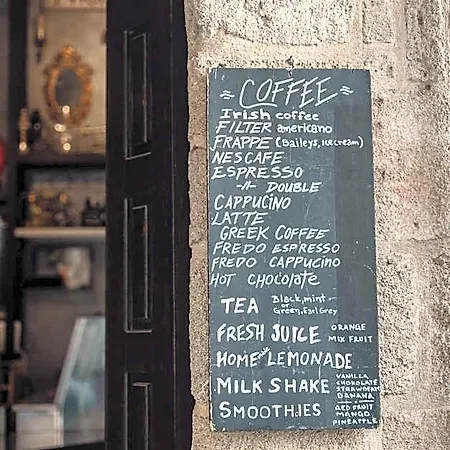 COFFEE
Irish coffee
FILTER americano
FRAPPE (Baileys, icecream)
NESCAFE
ESPRESSO
-//- DOUBLE
CAPPUCINO
LATTE
GREEK COFFEE
FREDO ESPRESSO
FREDO CAPPUCINO
HOT CHOCOLATE
TEA Black, mint
or
Green, Earl Grey
FRESH JUICE ORANGE
MIX FRUIT
HOMEmade LEMONADE
MILK SHAKE VANILLA
CHOKOLATE
STRAWBERY
BANANA
SMOOTHIES RED FRUIT
MANGO
PINEAPPLE